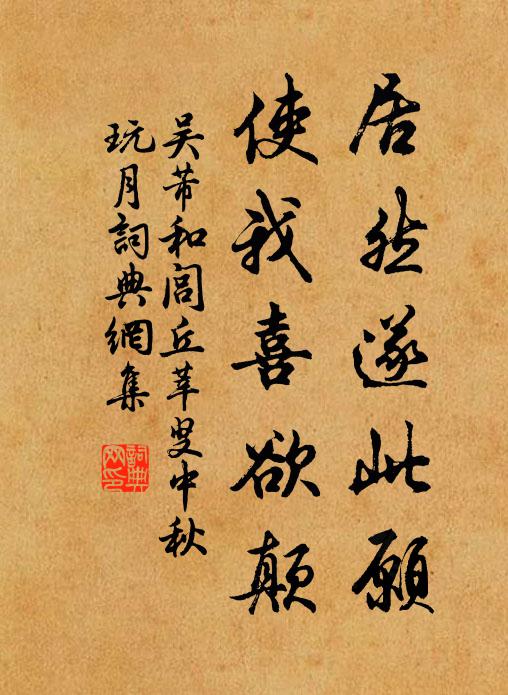 居然遂此願
使我喜欲颠
吴芾和闾丘莘叟中秋
玩月詞典網集
詞典
网印